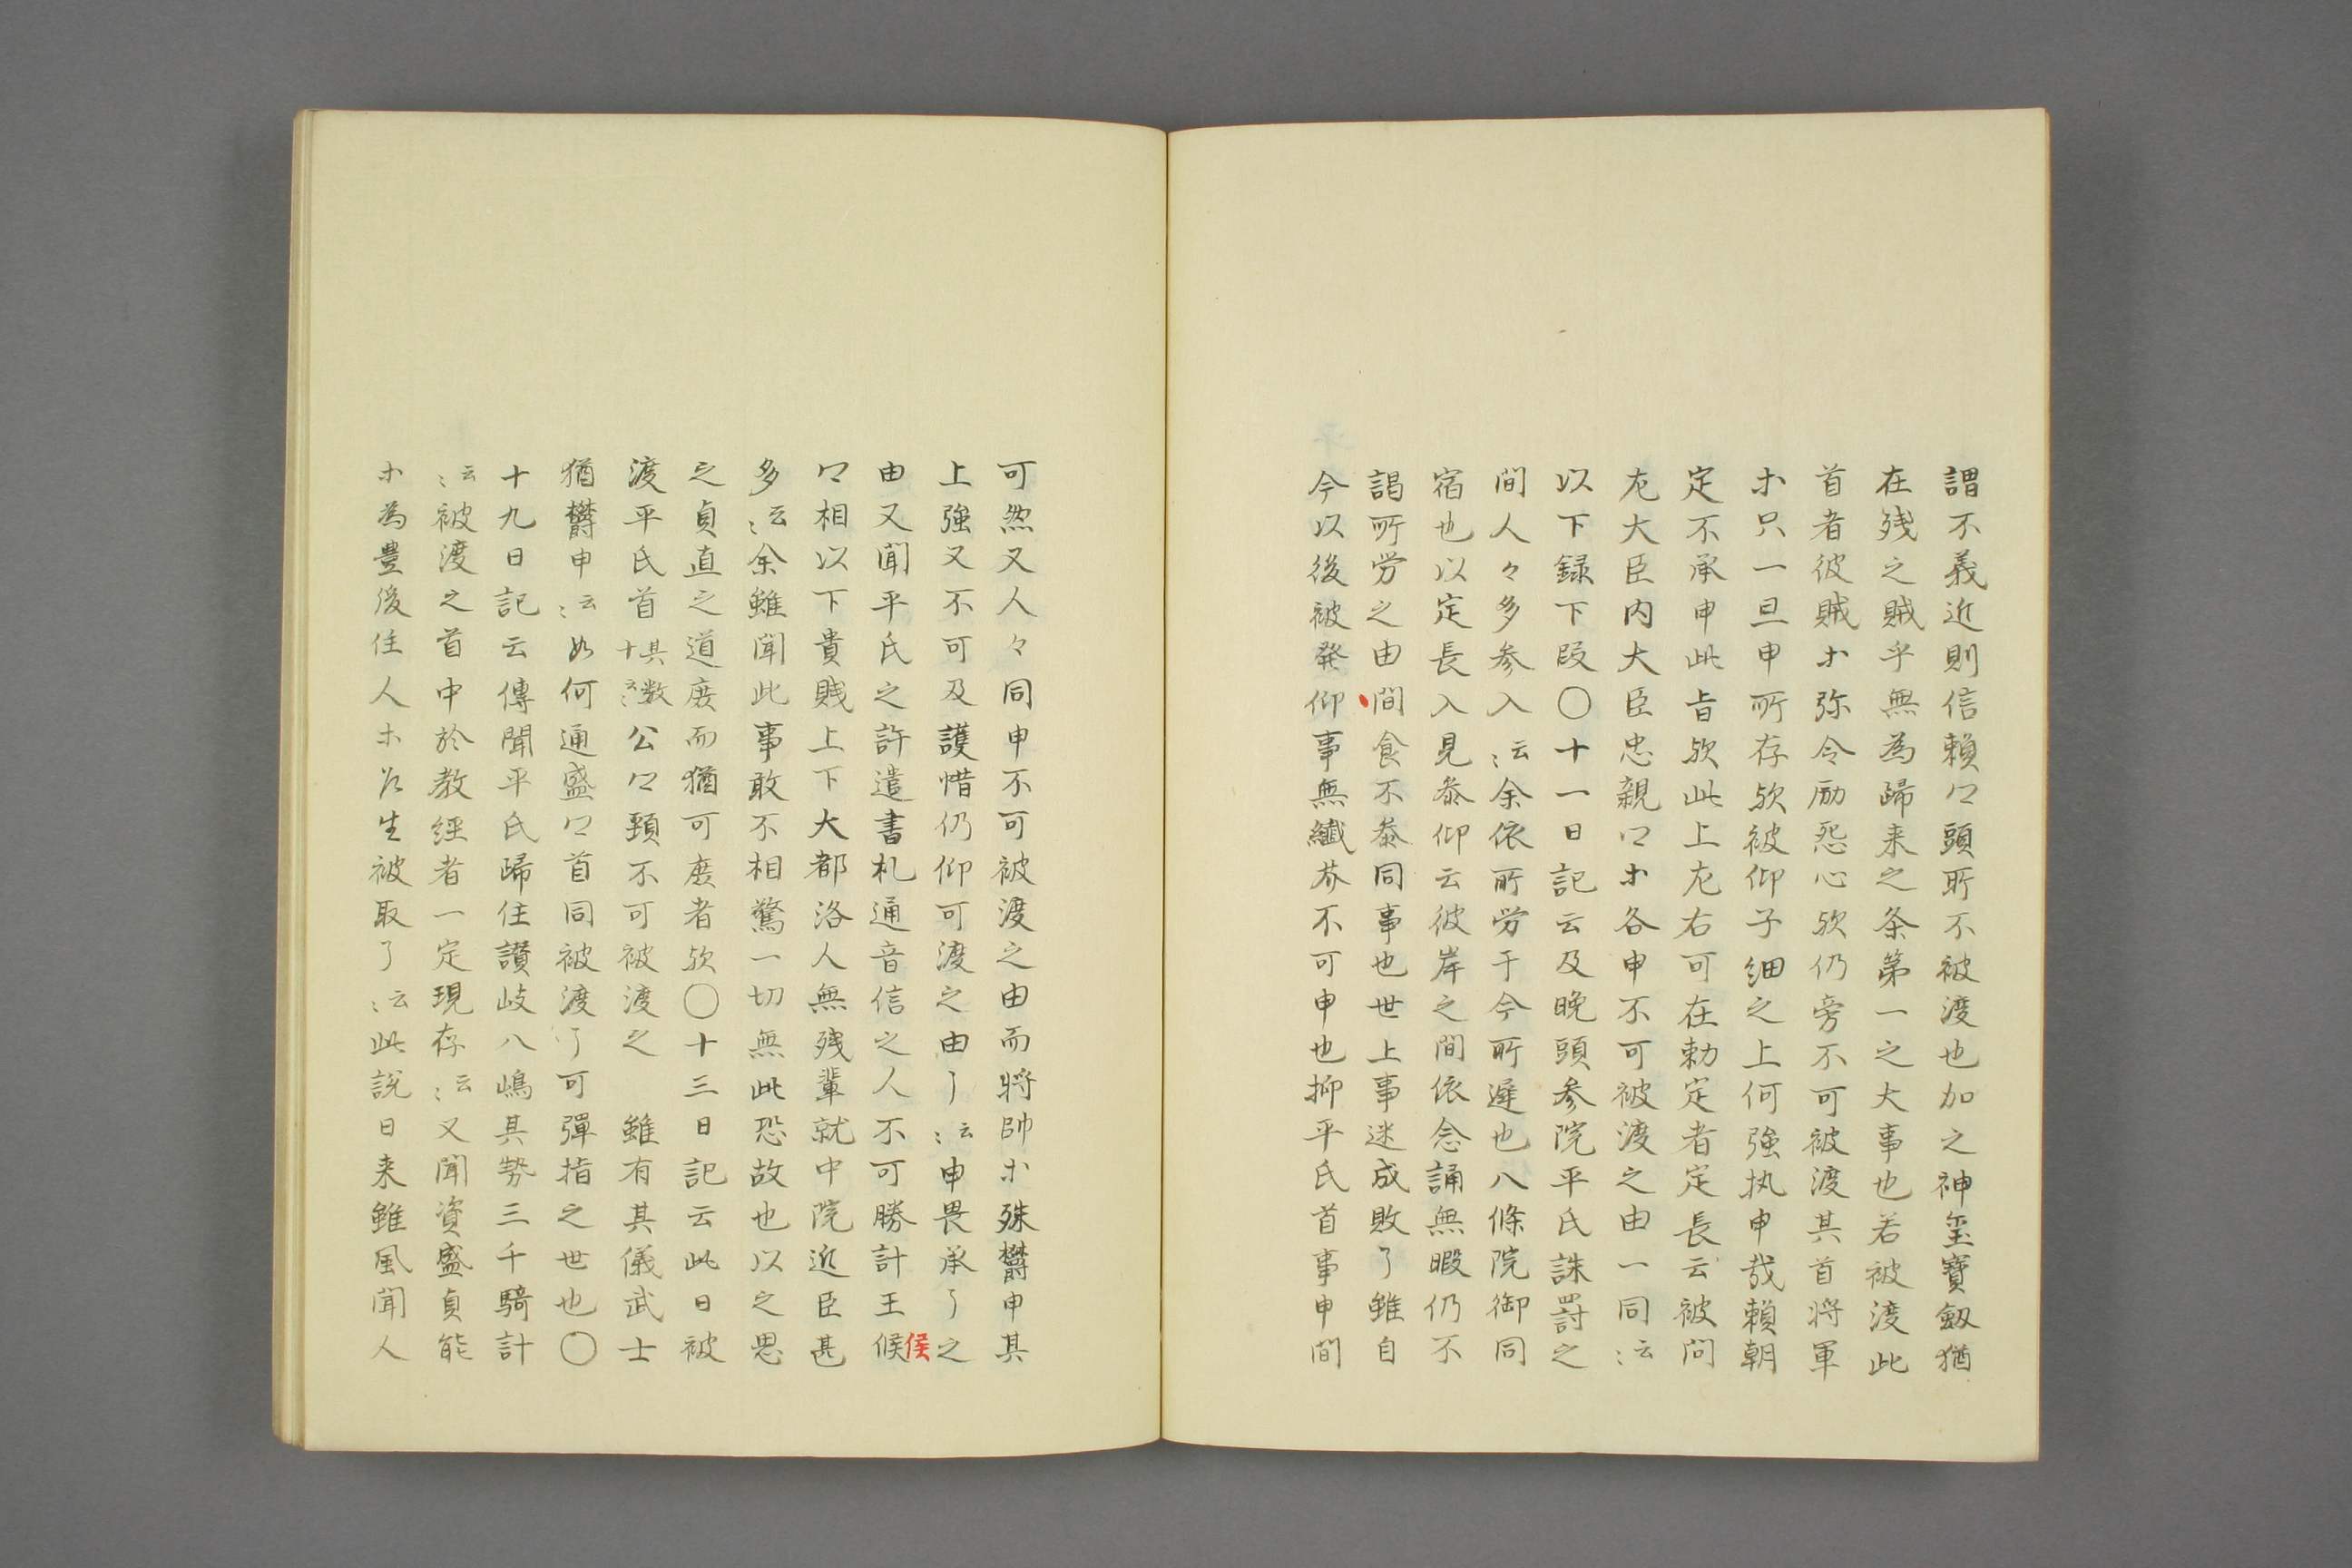 謂不義近則信頼卿頭所不被渡也加之神璽寶釼猶
在残之賊乎無為歸来之条第一之大事也若被渡此
首者彼賊等弥令励怨心欤仍旁不可被渡其首将軍
等只一旦申所存欤被仰子細之上何強执申哉頼朝
定不承申此旨欤此上左右可在勅定者定長云被問
左大臣内大臣忠親卿等各申不可被渡之由一同云々
以下録下段〇十一日記云及晩頭参院平氏誅罸之
間人々多参入云々余依所労于今所遅也八條院御同
宿也以定長入見参仰云彼岸之間依念誦無暇仍不
謁所労之由間食不参同事也世上事迷成敗了雖自
今以後被発仰事無纎芥不可申也抑平氏首事申間
可然又人々同申不可被渡之由而将帥等殊欝申其
上強又不可及護惜仍仰可渡之由了云々申畏承了之
由又聞平氏之許遣書札通音信之人不可勝計王候侯
卿相以下貴賎上下大都洛人無残輩就中院近臣甚
多云々余雖聞此事敢不相驚一切無此恐故也以之思
之貞直之道廃而猶可廃者欤〇十三日記云此日被
渡平氏首其数十云々公卿頚不可被渡之 雖有其儀武士
猶欝申云々如何通盛卿首同被渡了可弾指之世也〇
十九日記云傳聞平氏歸住讃岐八嶋其勢三千騎計
云々被渡之首中於教經者一定現存云々又聞資盛貞能
等為豊後住人等乍生被取了云々此説日来雖風聞人